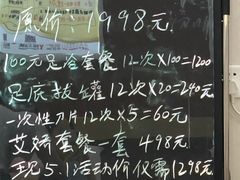 原价：1998元
100元足浴套餐12次×100=1200
足底拔罐12次×20=240元
一次性刀片12次×5=60元
艾娇套餐一套498元
现5.1活动价仅需1298元